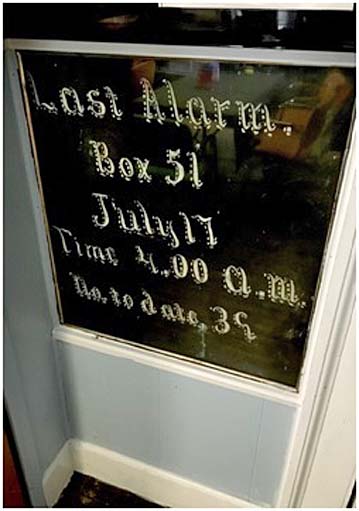 Last Alarm.
Box 51
July 17
Time 4.00 A.M.
No. to date.